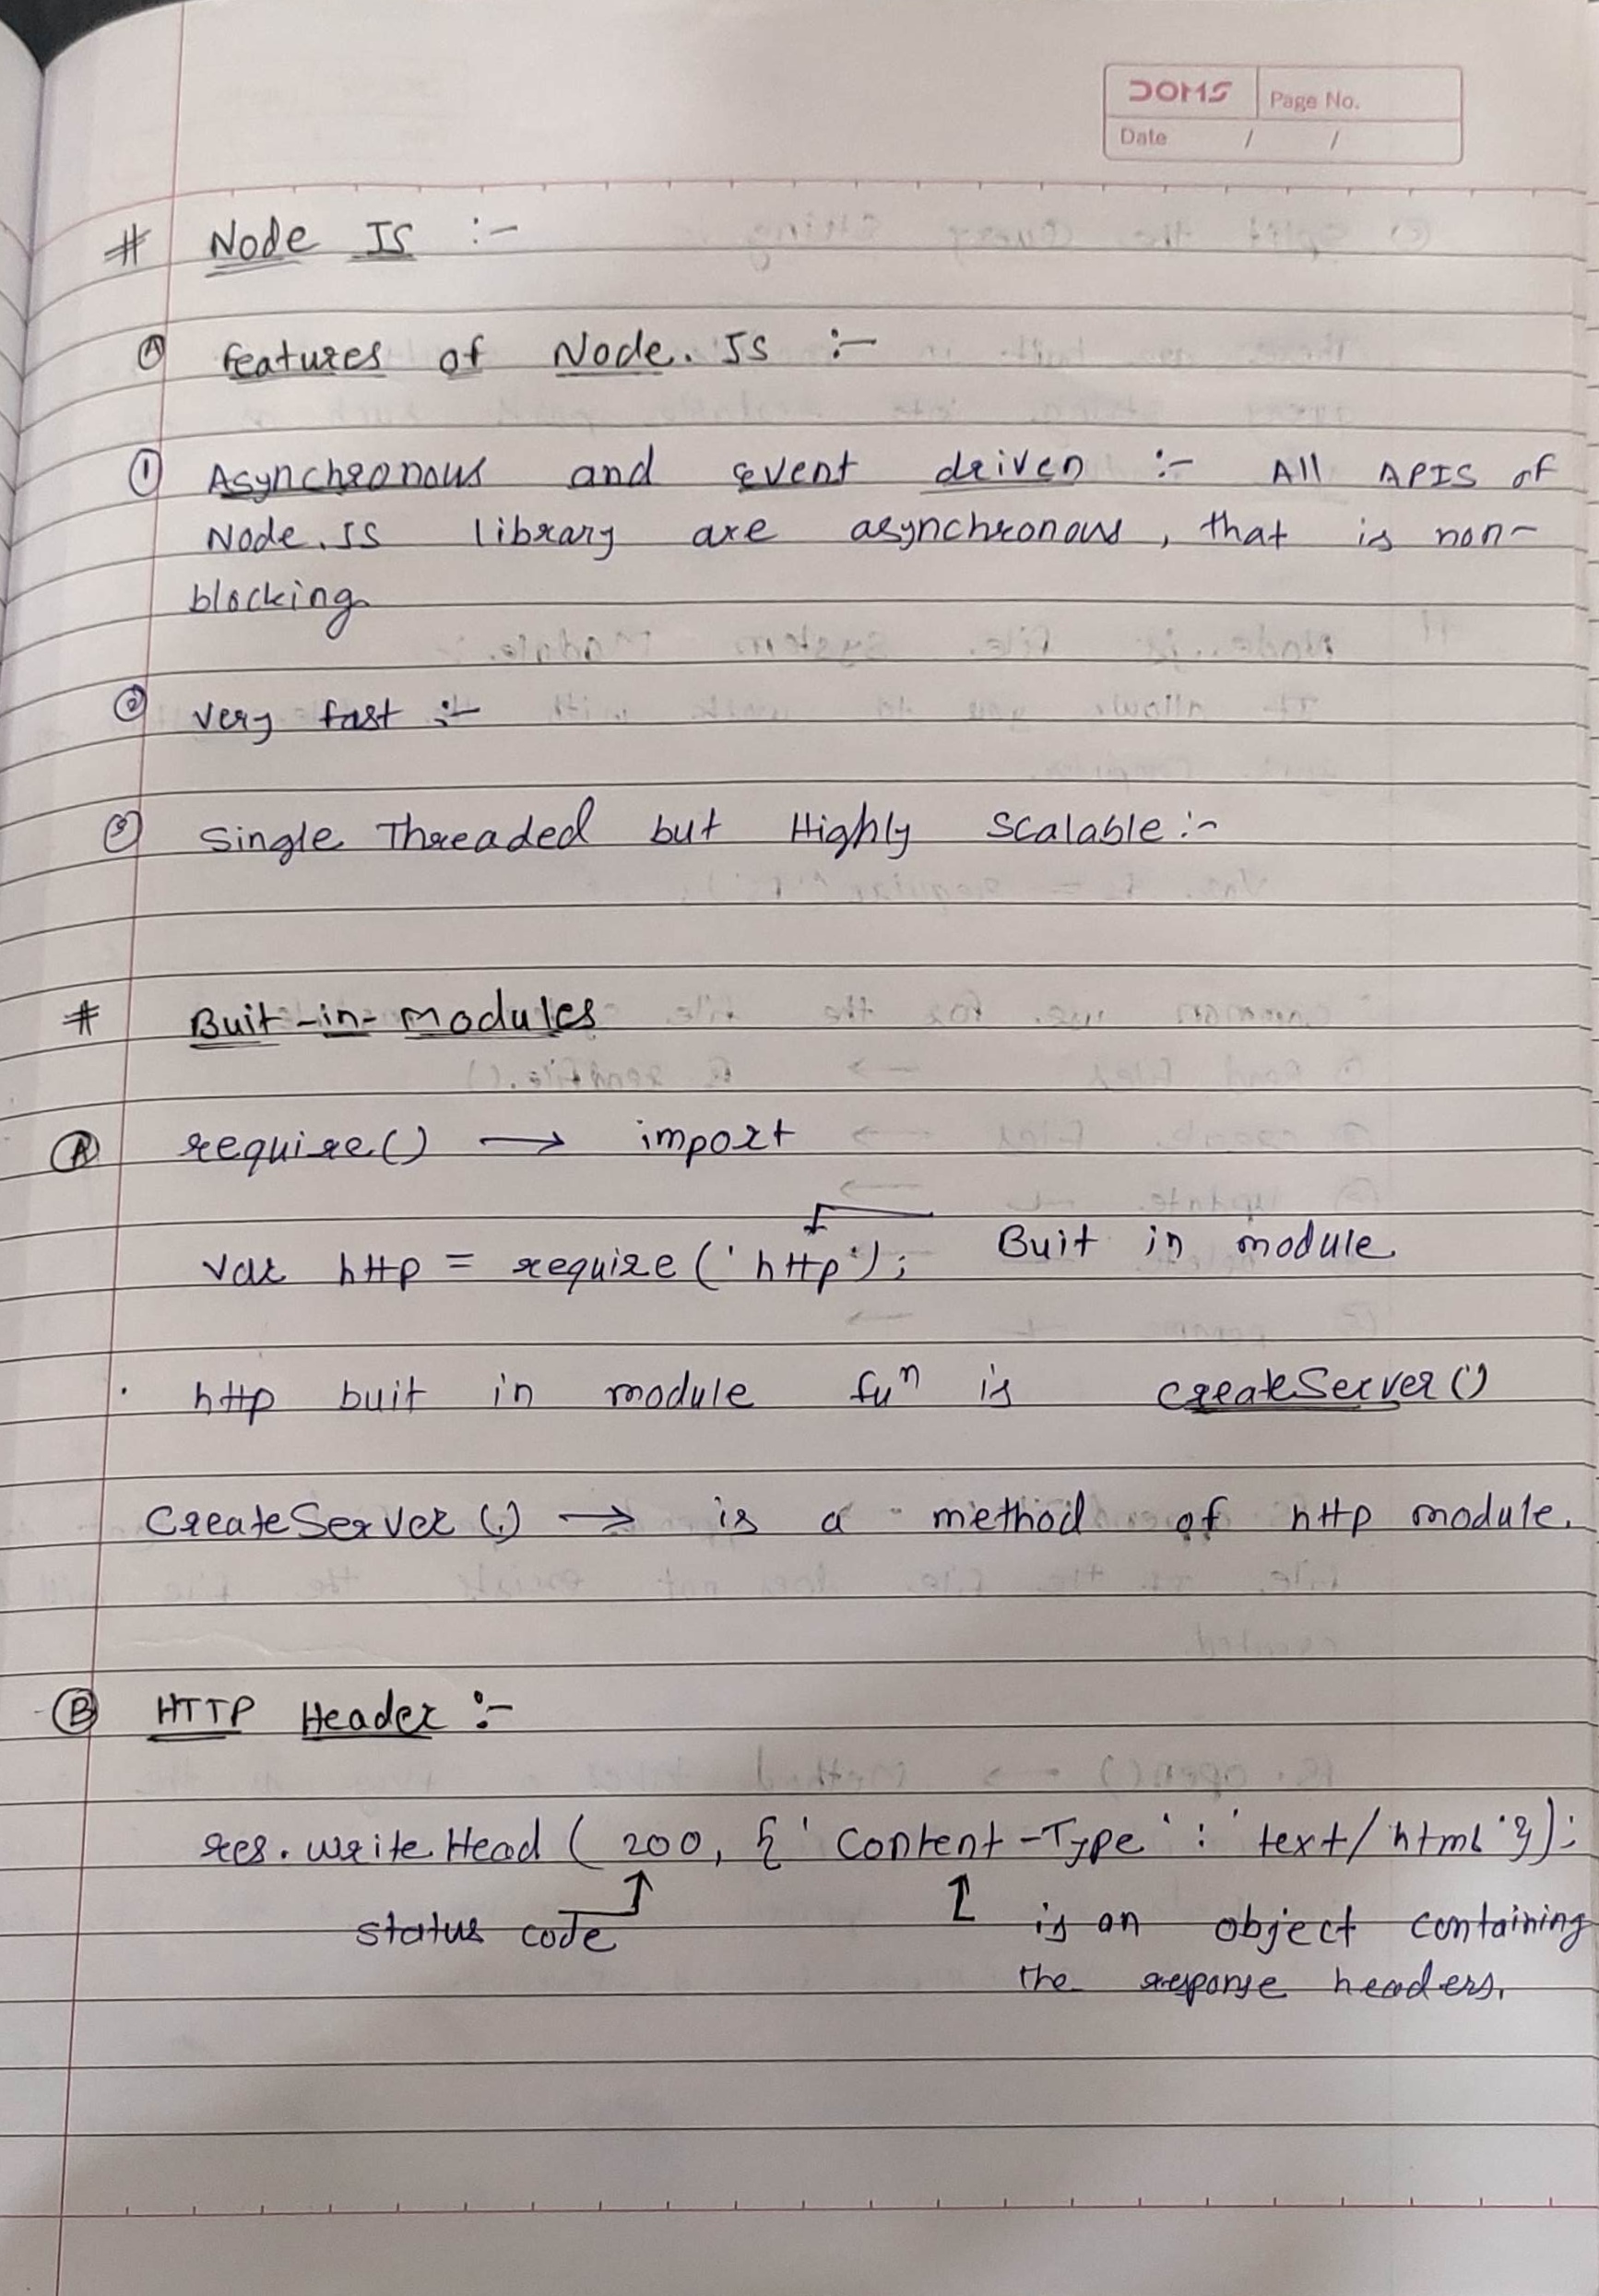 DOMS Page No.
Date / /
# Node JS :-
Ⓐ features of Node.JS :-
① Asynchronous and event driven :- All APIS of
Node.JS library are asynchronous, that is non-
blocking
② very fast :-
③ Single Threaded but Highly Scalable :-
# Buit-in-Modules
Ⓐ require() → import
var http = require('http'); Buit in module
· http buit in module fuⁿ is createServer()
CreateServer() → is a method of http module.
Ⓑ HTTP Header :-
res.writeHead(200, {'Content-Type' : 'text/html'});
status code is an object containing
the response headers.